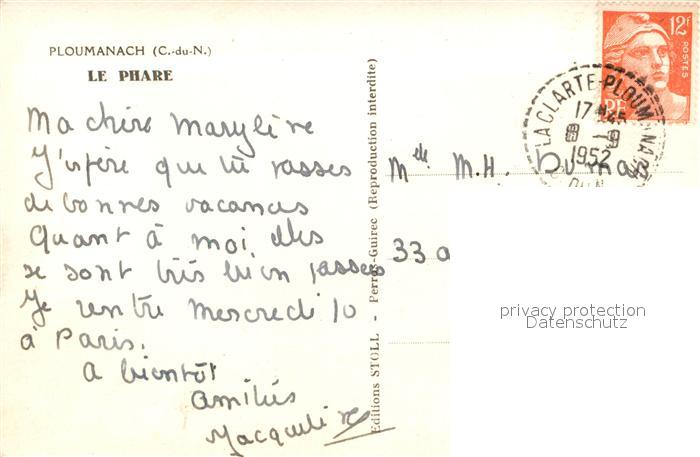 PLOUMANACH (C.-du-N.)
LE PHARE
Ma chère Marylène
J'espère que tu passes
de bonnes vacances
Quant à moi elles
se sont très bien passées
Je rentre mercredi 10
à Paris.
A bientôt
Amitiés
Jacqueline
Editions STOLL - Perros-Guirec (Reproduction interdite)
12f
POSTES
RF
LA CLARTE-PLOUMANACH
17 H 45
8 - 9
1952
C. DU N.
Mlle M.H. Dumas
33 a
privacy protection
Datenschutz